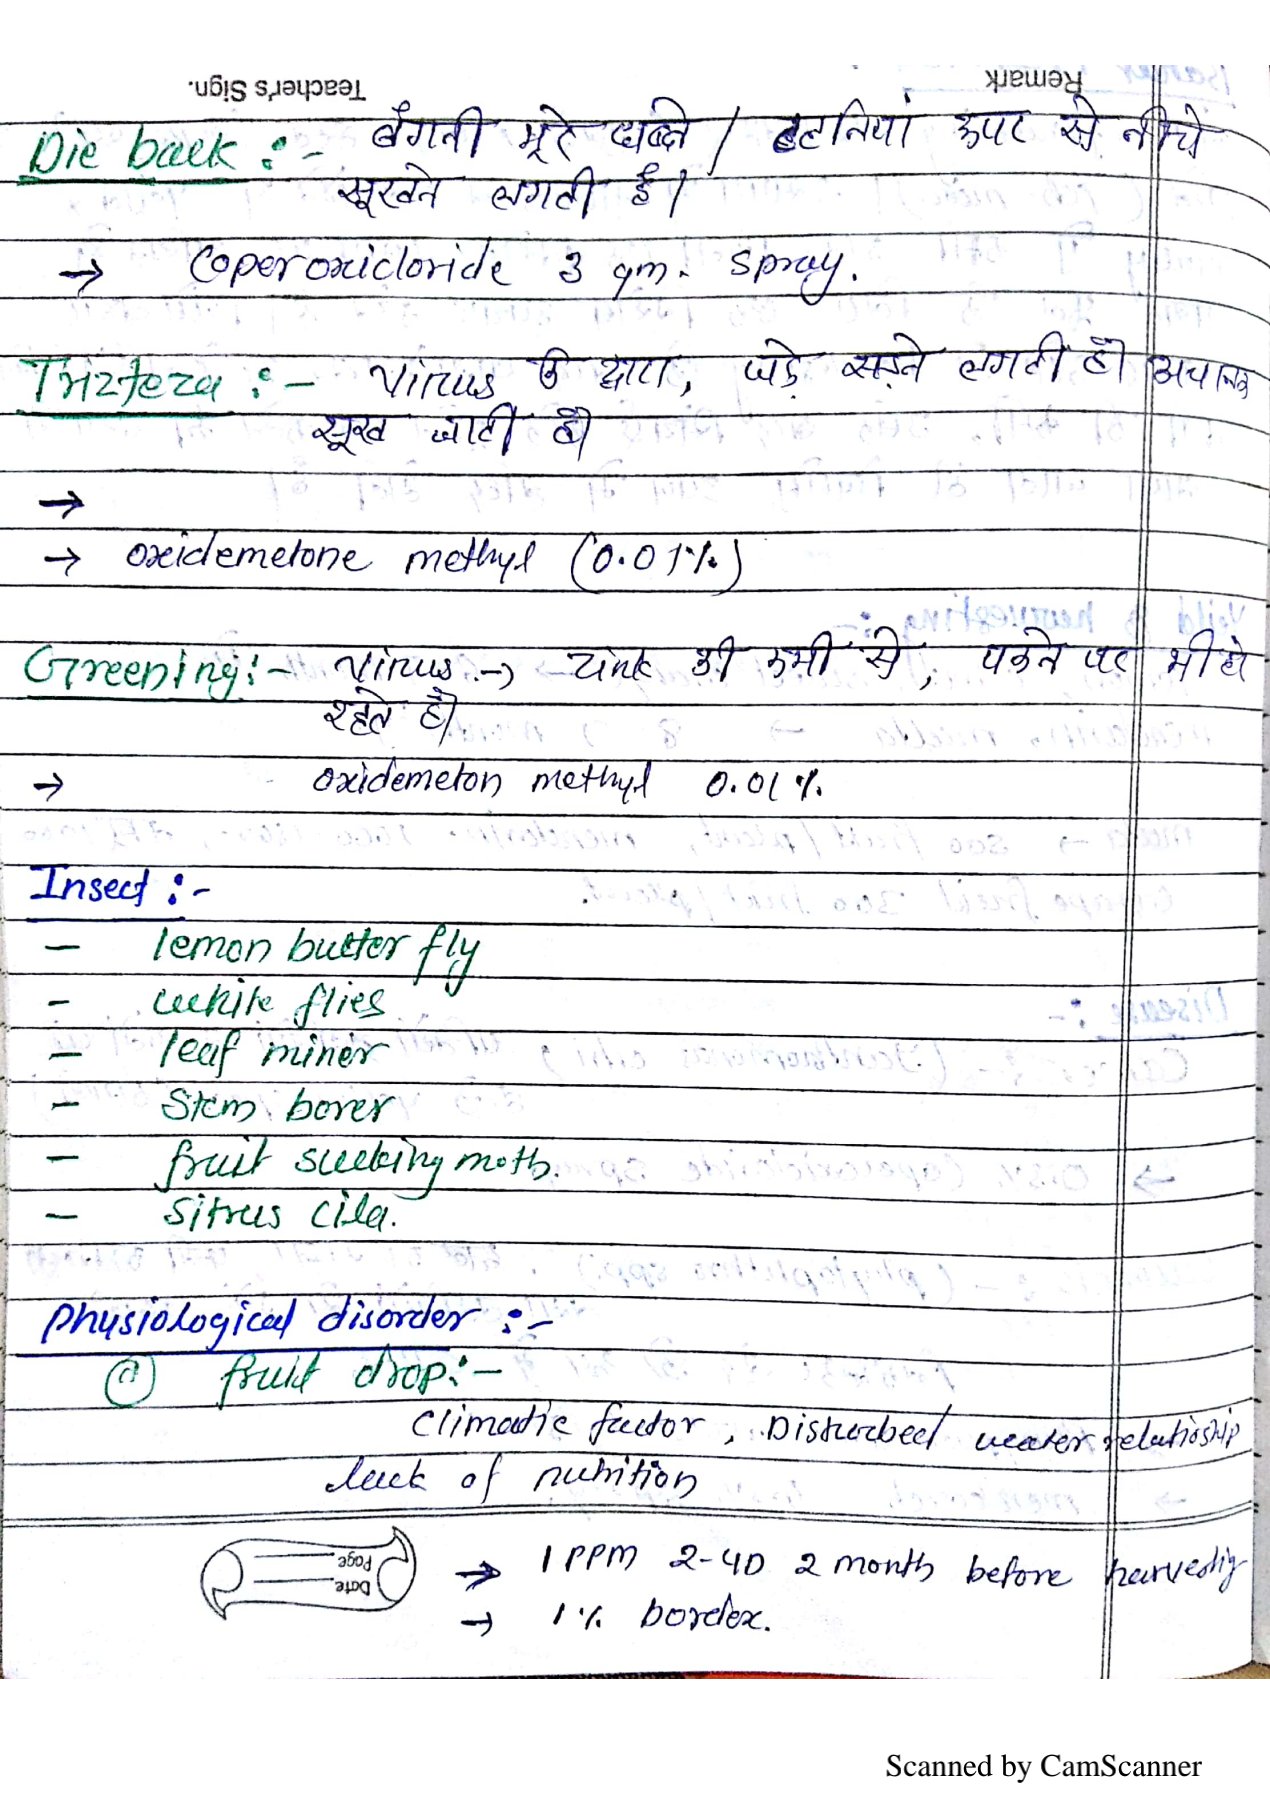 Remark
Teacher's Sign.
Die back :- बैंगनी भूरे धब्बे / टहनियां ऊपर से नीचे
सूखने लगती हैं।
→ Coperoxicloride 3 gm. spray.
Trizteza :- Virus के द्वारा, जड़े सड़ने लगती है। अचानक
सूख जाती है।
→
→ oxidemetone methyl (0.01%)
Greening:- Virus → Zink की कमी से, पकने पर भी हरे
रहते है।
→ oxidemeton methyl 0.01 %
Insect :-
- lemon butter fly
- white flies
- leaf miner
- Stem borer
- fruit sucking moth.
- Sitrus cila.
Physiological disorder :-
① fruit drop:-
Climatic factor, Disturbed water relatioship
lack of nutrition
Date
Page
→ 1 PPM 2-4D 2 month before harvestig
→ 1% bordox.
Scanned by CamScanner